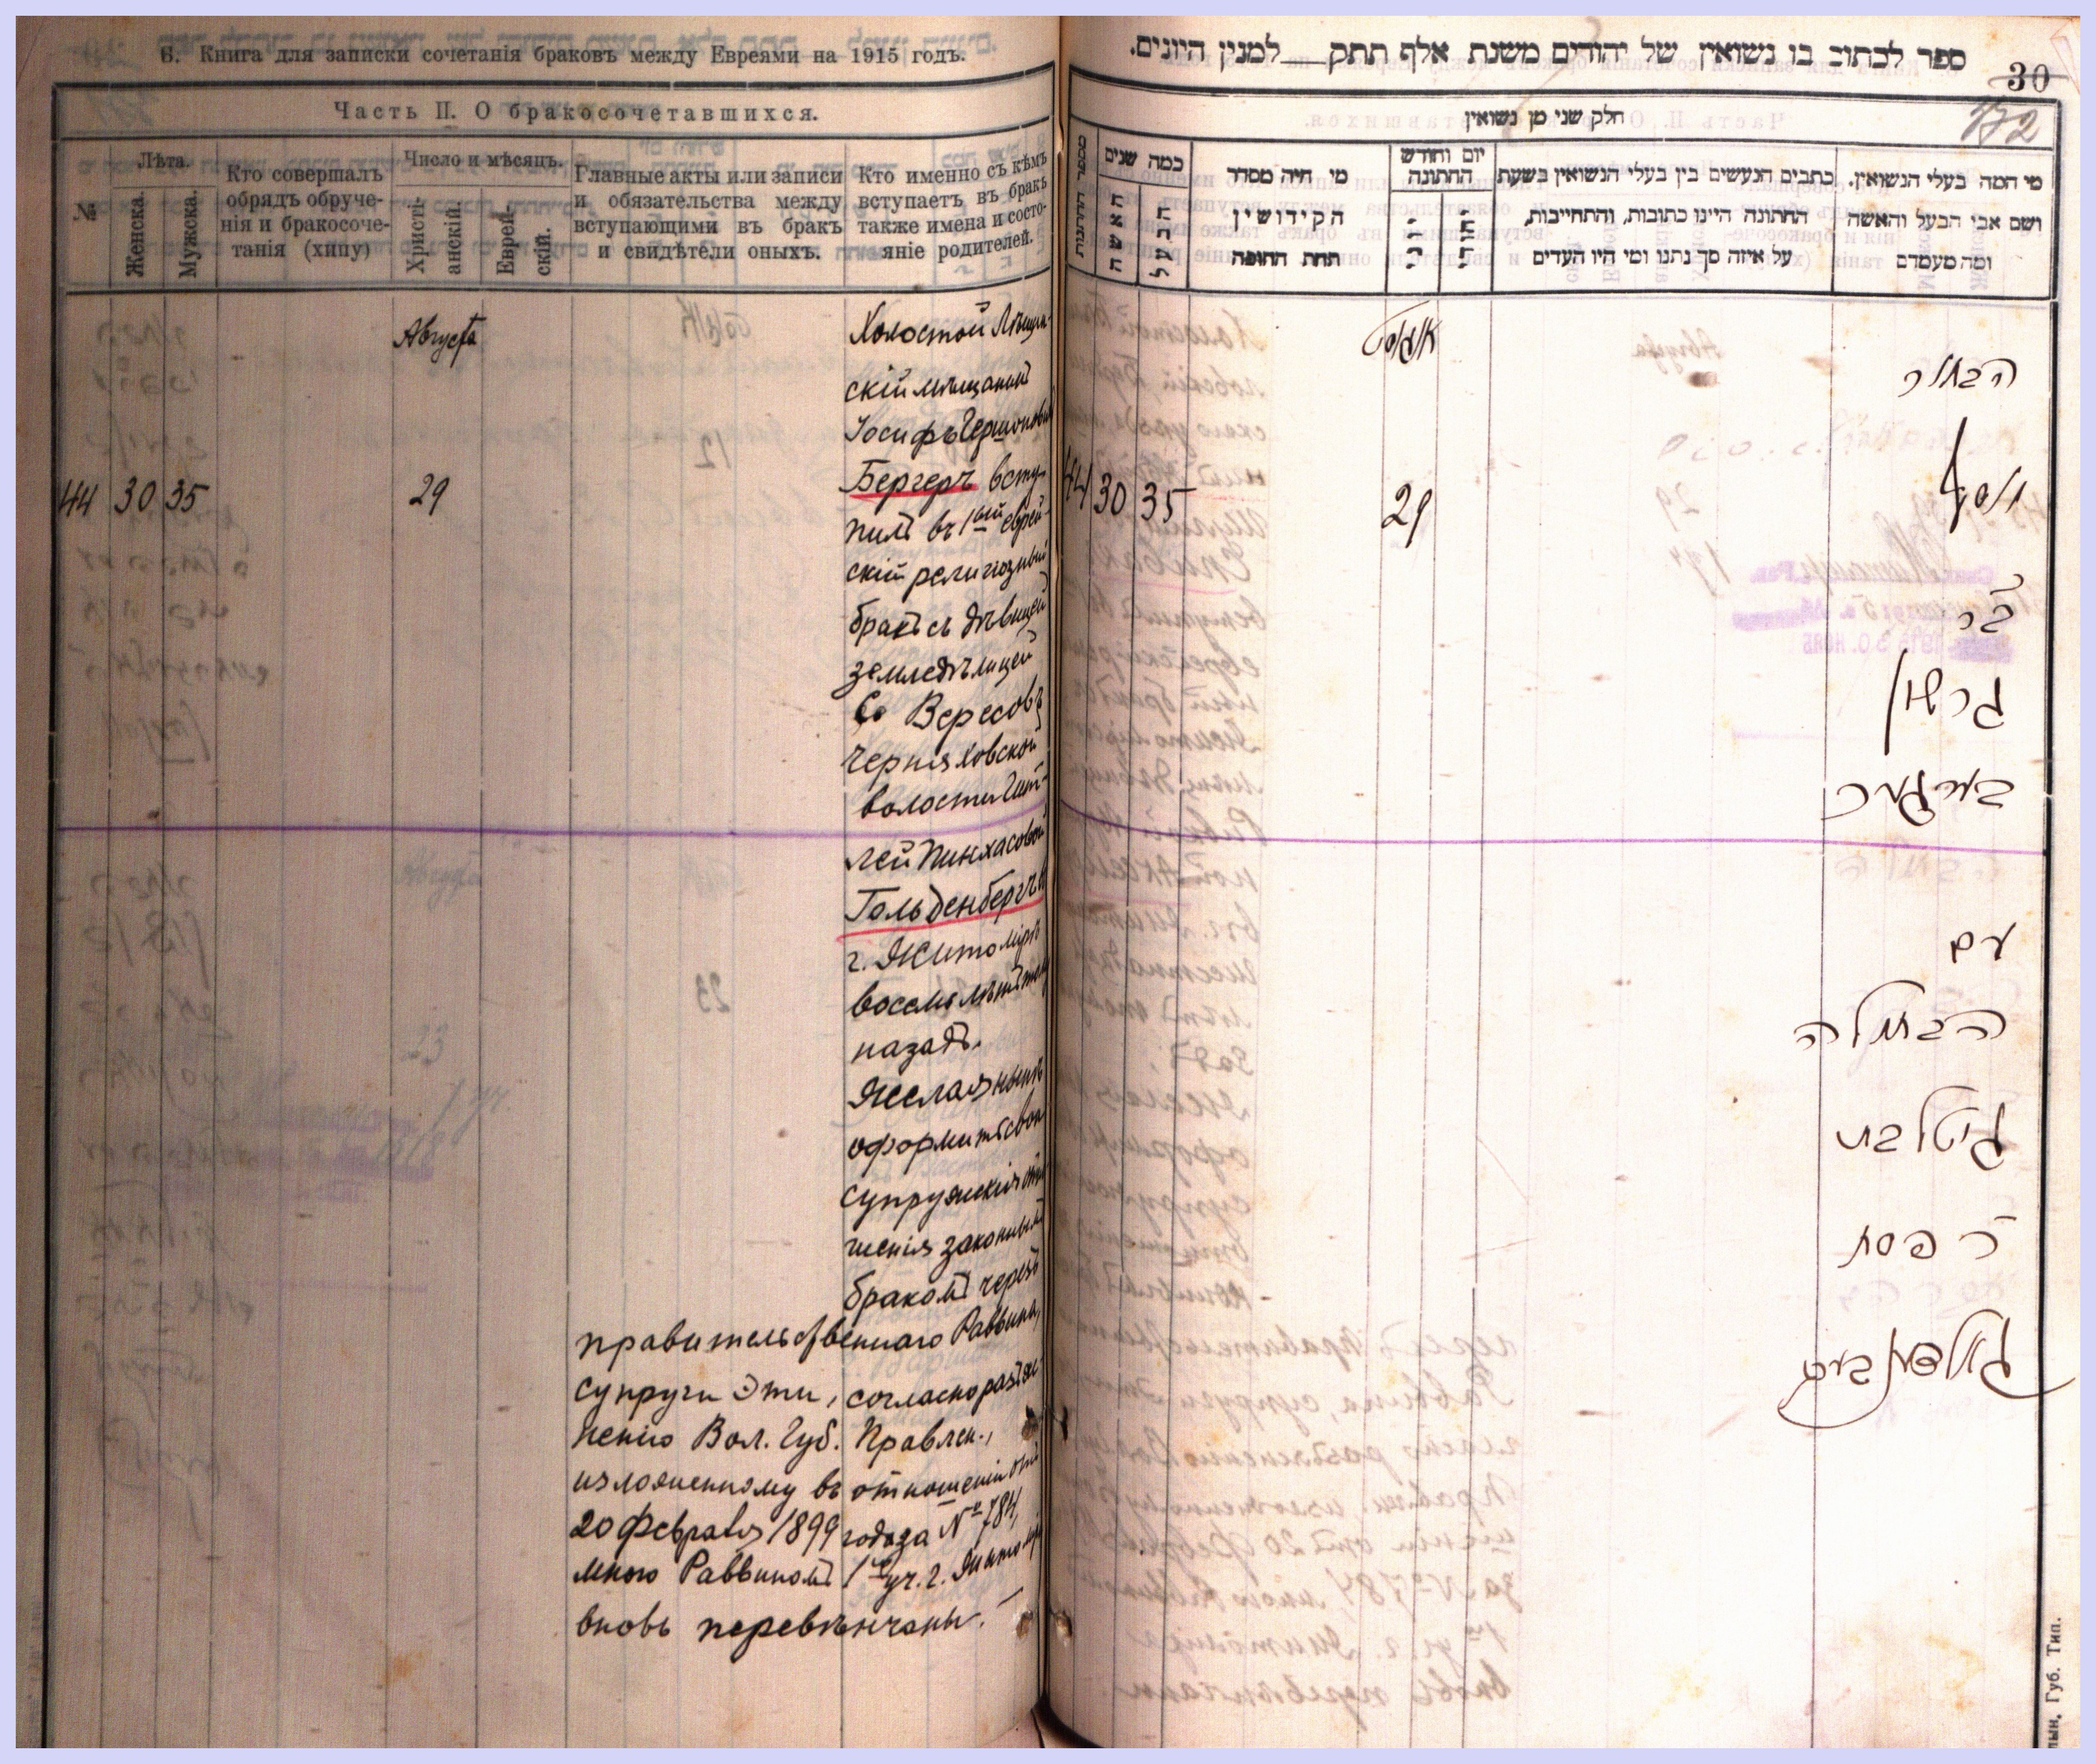 Б. Книга для записки сочетанія браковъ между Евреями на 1915 годъ.
Часть II. О бракосочетавшихся.
№
Лѣта.
Женска.
Мужска.
Кто совершалъ
обрядъ обруче-
нія и бракосоче-
танія (хипу)
Число и мѣсяцъ.
Христі-
анскій.
Еврей-
скій.
Главные акты или записи
и обязательства между
вступающими въ бракъ
и свидѣтели оныхъ.
Кто именно съ кѣмъ
вступаетъ въ бракъ
также имена и состо-
яніе родителей.
Августа
44 30 35 29
Холостой
скій мѣщанинъ
Іосифъ Гершоновичъ
Бергеръ всту-
пилъ въ 1ый еврей-
скій религіозный
бракъ съ дѣвицей
земледѣлицей
с. Вересовъ
Черняховской
волости Гит-
лей Пинхасовой
Гольденбергъ въ
г. Житомірѣ
восемь лѣтъ тому
назадъ.
Желая нынѣ
оформить свои
супружескія отно-
шенія законнымъ
бракомъ черезъ
правительственнаго Раввина,
супруги эти, согласно разъяс-
ненію Вол. Губ. Правлен.,
изложенному въ отношеніи отъ
20 Февраля 1899 года за № 784,
мною Раввиномъ 1го уч. г. Житоміра
вновь перевѣнчаны.
ספר לכתוב בו נשואין של יהודים משנת אלף תתק למנין היונים.
30
172
חלק שני מן נשואין
מספר החתונות
כמה שנים
האשה
הבעל
מי היה מסדר
הקידושין
תחת החופה
יום וחודש
החתונה
כתבים הנעשים בין בעלי הנשואין בשעת
החתונה היינו כתובות, והתחייבות,
על איזה סך נתנו ומי היו העדים
מי המה בעלי הנשואין.
ושם אבי הבעל והאשה
ומה מעמדם
אווגוסט
44 30 35 29
הבחור
יוסף
בר
גרשון
בערגער
עם
הבתולה
גיטל בת
ר פסח
גאלדענבערג
лын. Губ. Тип.